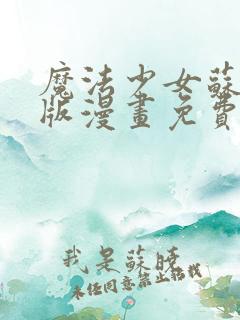 魔法少女蘇
版漫畫免費
我是蘇曉
未经同意禁止转载